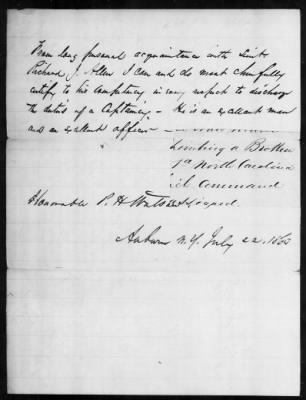 From long personal acquaintance with Lieut
Richard J. Allen I can and do most cheerfully
certify to his competency in every respect to discharge
the duties of a Captaincy - He is an excellent man
and an excellent officer -
a Brother
1st North Carolina
Command
Honorable P. H. Watson
Auburn N.Y. July 22. 1863